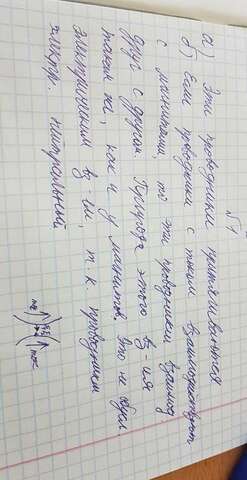 №1
а) Эти проводники притягиваются
б) Если проводники с током взаимодействуют
с магнитами, то эти проводники взаимод.
друг с другом. Природа этого вз-ия
такая же, как и у магнитов. Это не будет
электрическим вз-ем, т.к проводники
электр. нейтральны.
ток
ток